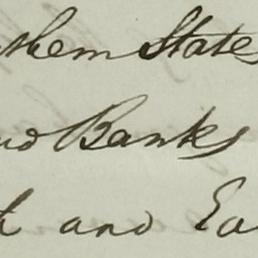 them States
Banks
and Ea